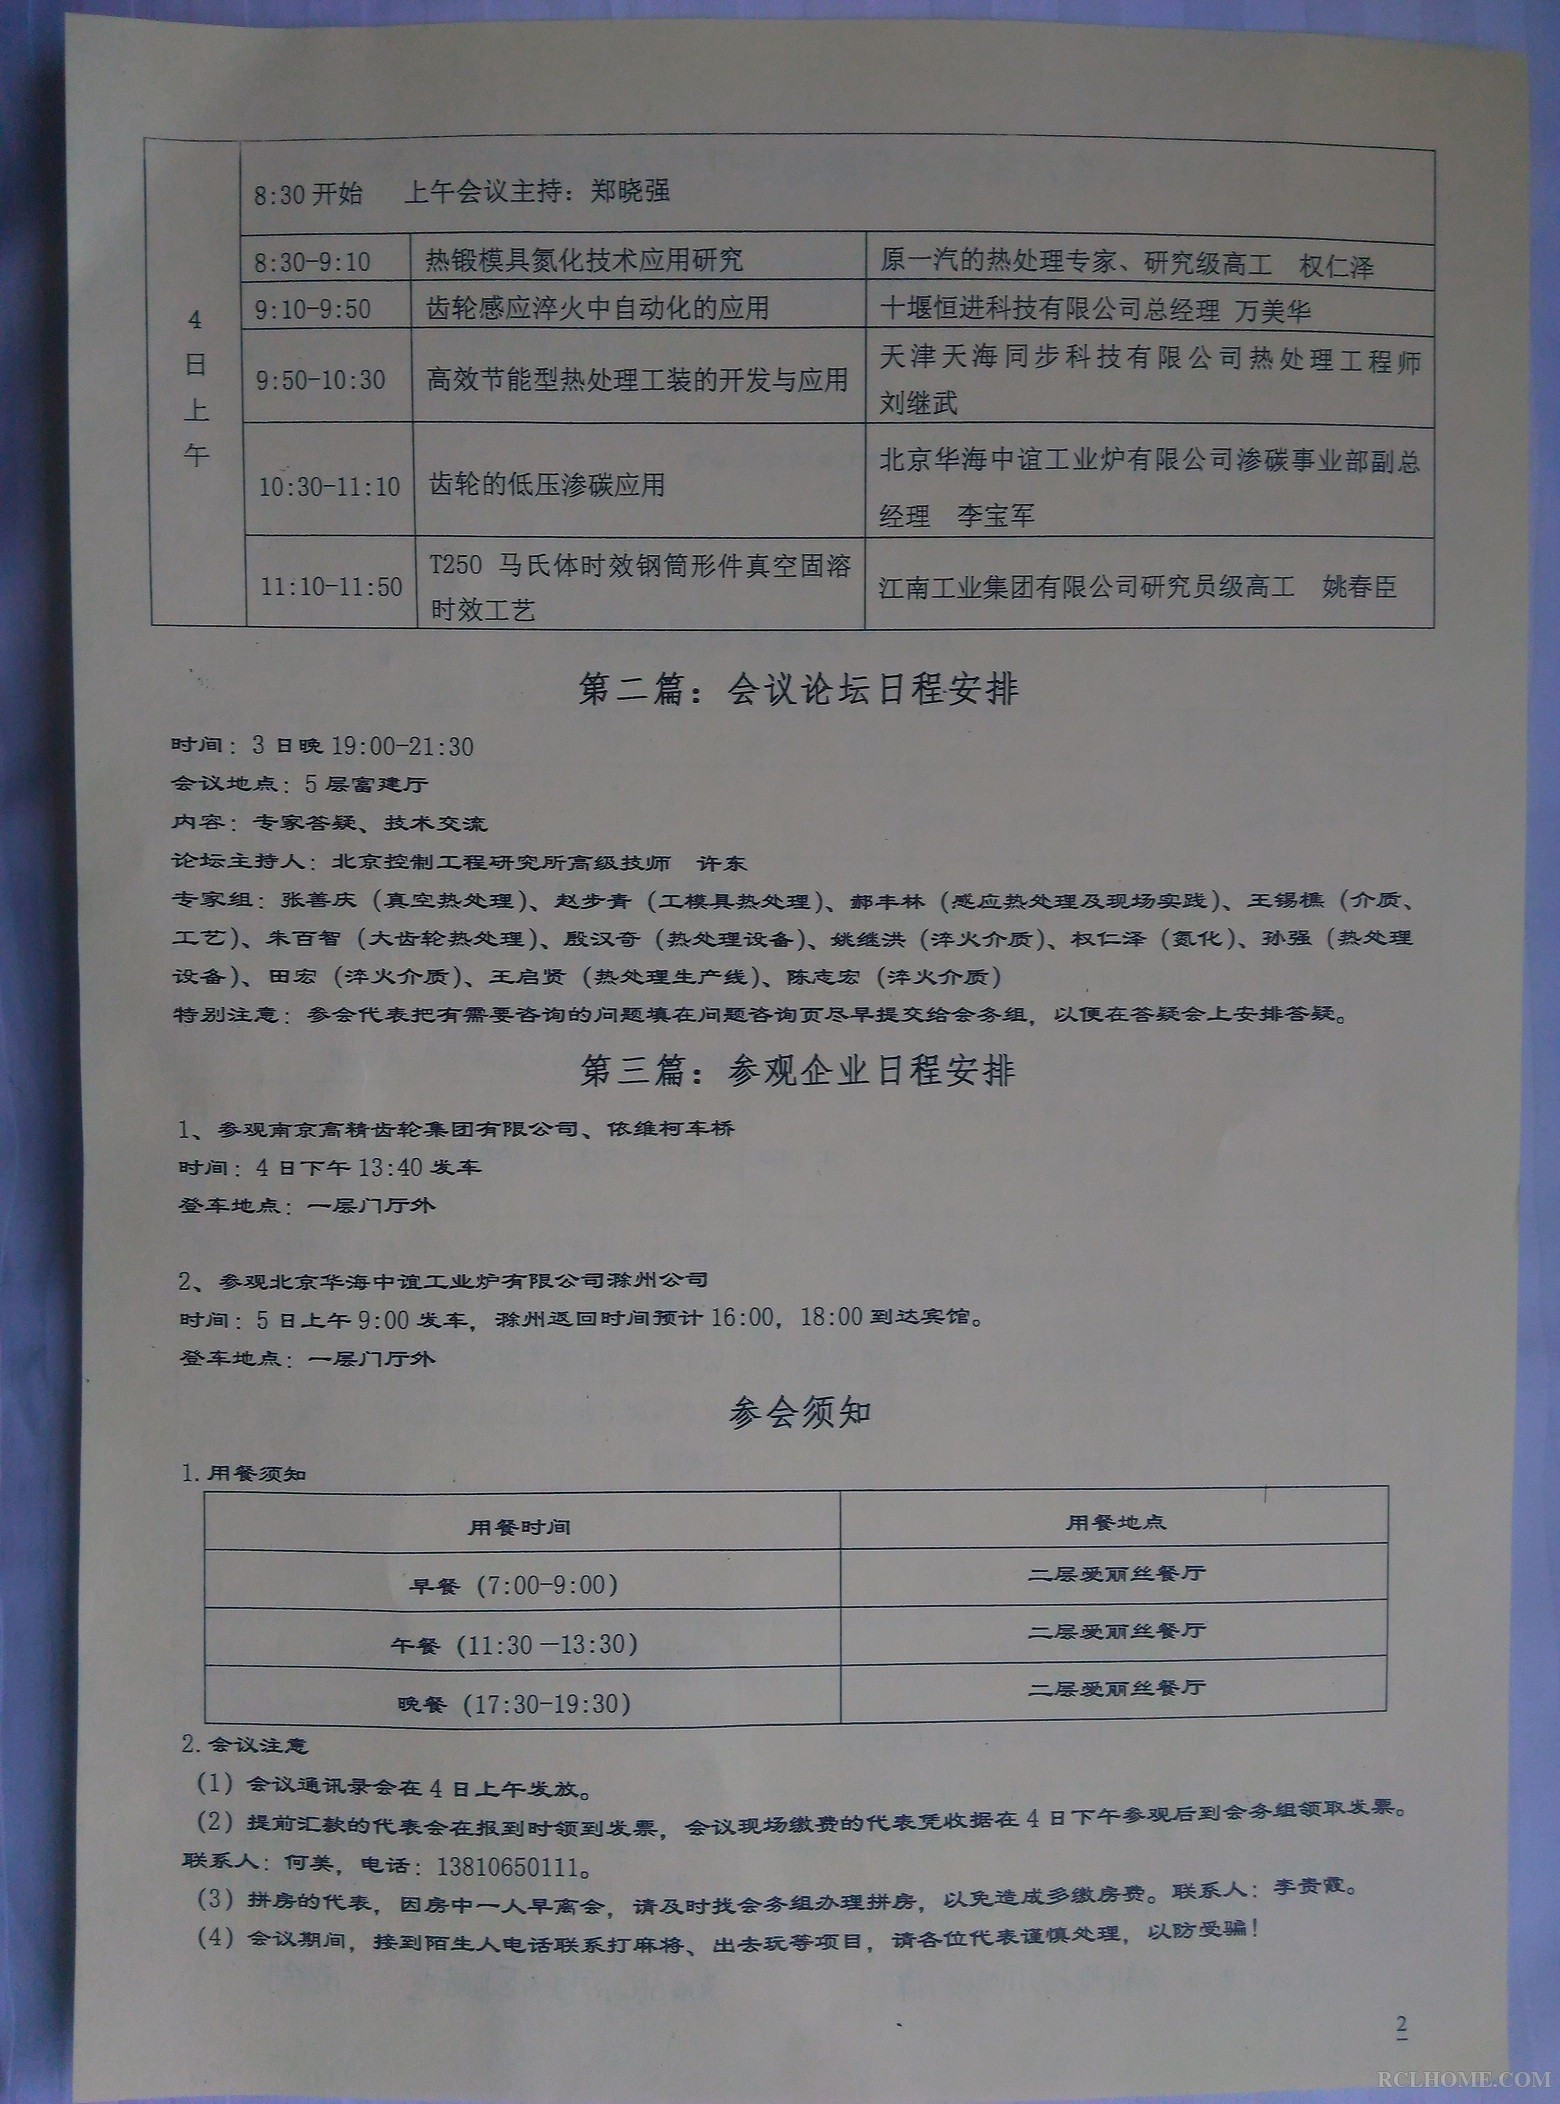 4
日
上
午
8:30 开始 上午会议主持：郑晓强
8:30-9:10 热锻模具氮化技术应用研究 原一汽的热处理专家、研究级高工 权仁泽
9:10-9:50 齿轮感应淬火中自动化的应用 十堰恒进科技有限公司总经理 万美华
9:50-10:30 高效节能型热处理工装的开发与应用 天津天海同步科技有限公司热处理工程师
刘继武
10:30-11:10 齿轮的低压渗碳应用 北京华海中谊工业炉有限公司渗碳事业部副总
经理 李宝军
11:10-11:50 T250 马氏体时效钢筒形件真空固溶
时效工艺 江南工业集团有限公司研究员级高工 姚春臣
第二篇：会议论坛日程安排
时间：3 日晚 19:00-21:30
会议地点：5 层富建厅
内容：专家答疑、技术交流
论坛主持人：北京控制工程研究所高级技师 许东
专家组：张善庆（真空热处理）、赵步青（工模具热处理）、郝丰林（感应热处理及现场实践）、王锡樵（介质、
工艺）、朱百智（大齿轮热处理）、殷汉奇（热处理设备）、姚继洪（淬火介质）、权仁泽（氮化）、孙强（热处理
设备）、田宏（淬火介质）、王启贤（热处理生产线）、陈志宏（淬火介质）
特别注意：参会代表把有需要咨询的问题填在问题咨询页尽早提交给会务组，以便在答疑会上安排答疑。
第三篇：参观企业日程安排
1、参观南京高精齿轮集团有限公司、依维柯车桥
时间：4 日下午 13:40 发车
登车地点：一层门厅外
2、参观北京华海中谊工业炉有限公司滁州公司
时间：5 日上午 9:00 发车，滁州返回时间预计 16:00，18:00 到达宾馆。
登车地点：一层门厅外
参会须知
1.用餐须知
用餐时间 用餐地点
早餐（7:00-9:00） 二层爱丽丝餐厅
午餐（11:30—13:30） 二层爱丽丝餐厅
晚餐（17:30-19:30） 二层爱丽丝餐厅
2.会议注意
（1）会议通讯录会在 4 日上午发放。
（2）提前汇款的代表会在报到时领到发票，会议现场缴费的代表凭收据在 4 日下午参观后到会务组领取发票。
联系人：何美，电话：13810650111。
（3）拼房的代表，因房中一人早离会，请及时找会务组办理拼房，以免造成多缴房费。联系人：李贵霞。
（4）会议期间，接到陌生人电话联系打麻将、出去玩等项目，请各位代表谨慎处理，以防受骗！
2
RCLHOME.COM